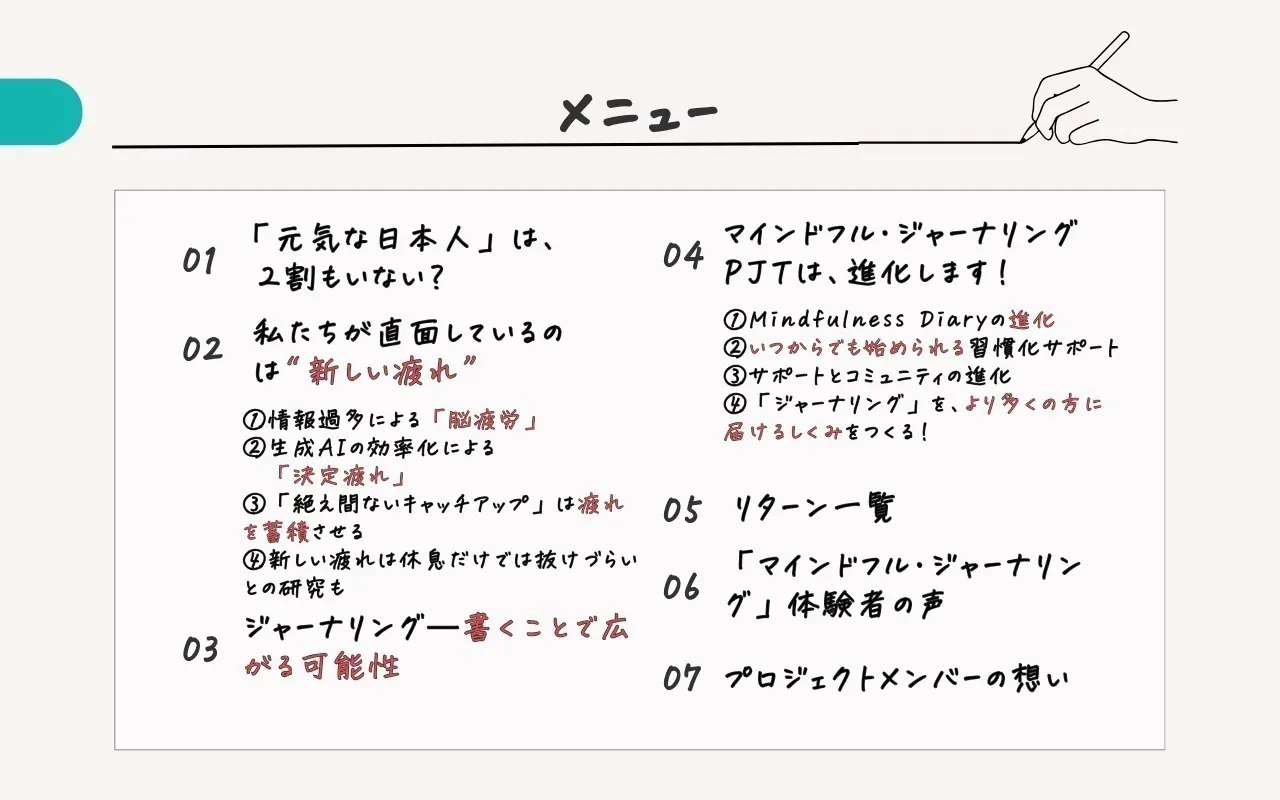 メニュー
01
「元気な日本人」は、
2割もいない?
02
私たちが直面しているの
は“新しい疲れ”
①情報過多による「脳疲労」
②生成AIの効率化による
「決定疲れ」
③「絶え間ないキャッチアップ」は疲れ
を蓄積させる
④新しい疲れは休息だけでは抜けづらい
との研究も
03
ジャーナリング―書くことで広
がる可能性
04
マインドフル・ジャーナリング
PJTは、進化します!
①Mindfulness Diaryの進化
②いつからでも始められる習慣化サポート
③サポートとコミュニティの進化
④「ジャーナリング」を、より多くの方に
届けるしくみをつくる!
05
リターン一覧
06
「マインドフル・ジャーナリン
グ」体験者の声
07
プロジェクトメンバーの想い